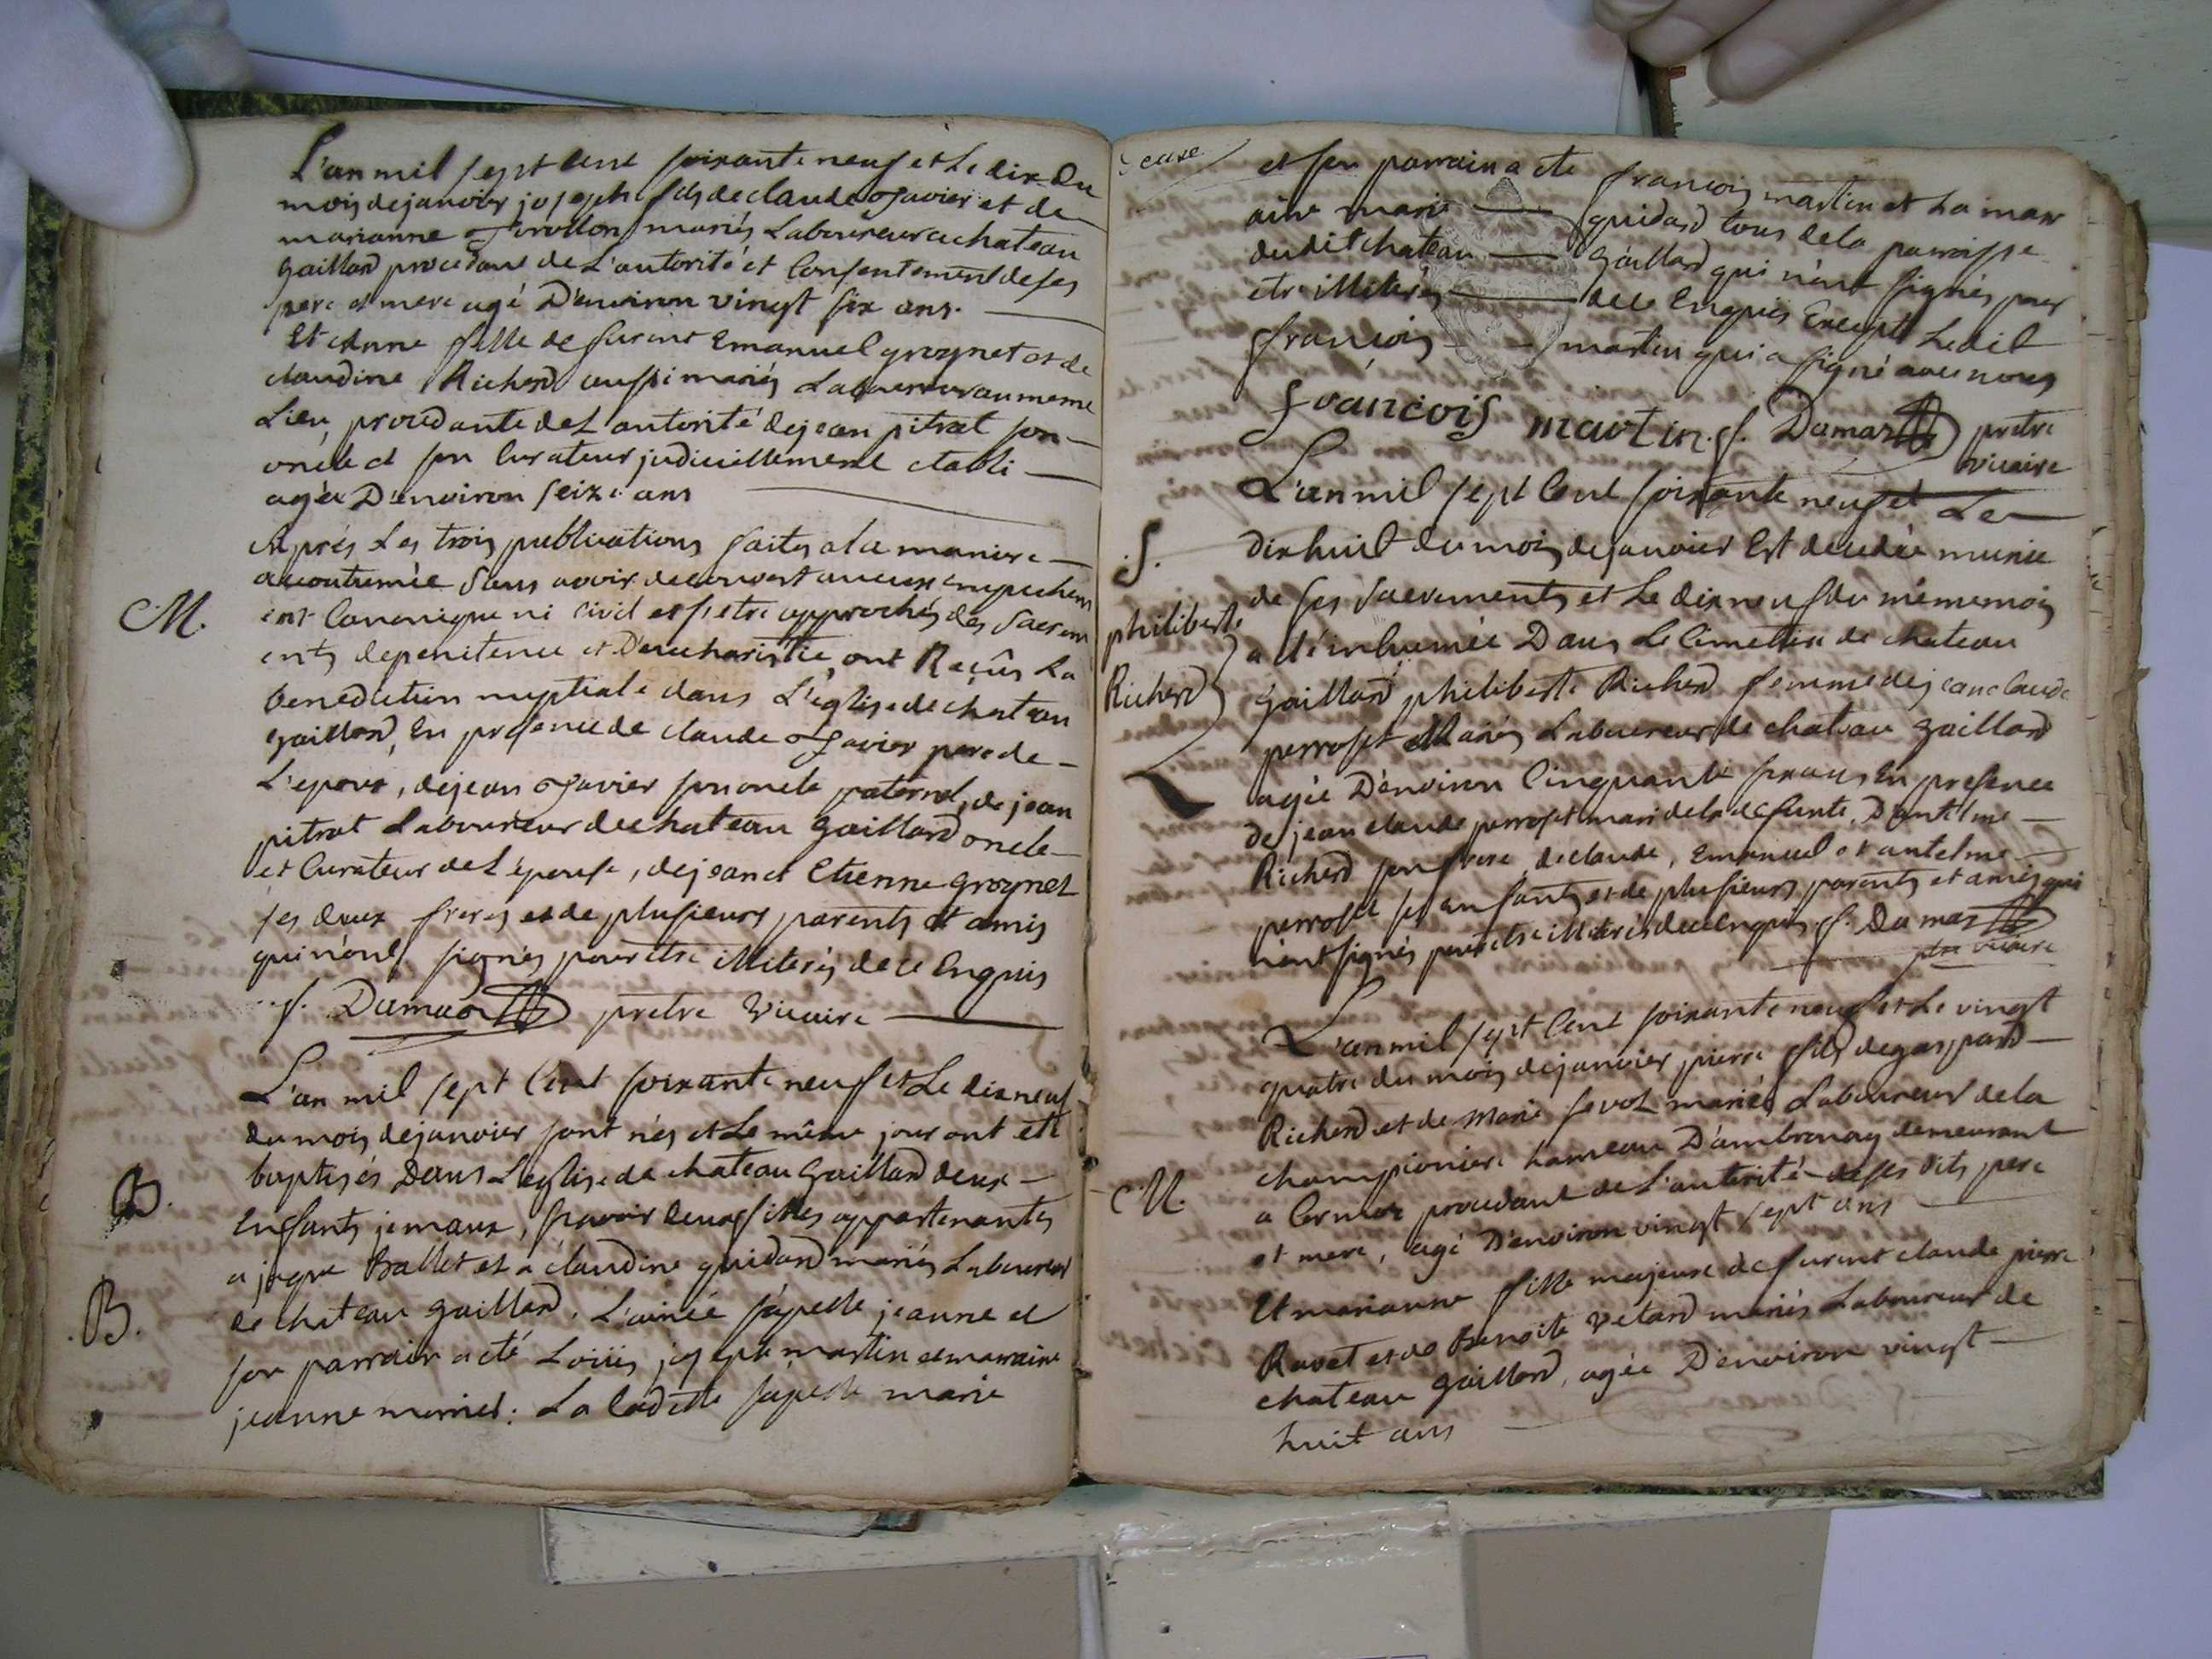 L'an mil sept cent soixante neuf et le dix du
mois de janvier joseph fils de claude Javier et de
marianne mariés Laboureur a chateau
gaillard procedant de L'autorité et consentement de ses
pere et mere agé D'environ vingt six ans.
Et Anne fille de furent Emanuel grognet et de
claudine Richerd aussi mariés Laboureur au meme
Lieu, procedante de L'autorité de jean pitrat son
oncle et son curateur judiciellement etabli
agée D'environ seize ans
M.
Aprés Les trois publications faites a la maniere
accoutumée sans avoir decouvert aucun empechem
ent canonique ni civil et s'etre approchés des sacrem
ents de penitence et D'eucharistie, ont Reçûs La
benediction nuptiale dans L'eglise de chateau
gaillard, En presence de claude Javier pere de
L'epoux, de jean Javier son oncle paternel, de jean
pitrat Laboureur de chateau gaillard oncle
et curateur de L'épouse, de jean et Etienne grognet
ses deux freres et de plusieurs parents et amis
qui n'ont signés pour être illiterés de ce Enquis
f. Damas prêtre Vicaire
L'an mil sept cent soixante neuf et Le dix neuf
du mois de janvier sont nés et Le même jour ont eté
B.
baptisés Dans L'eglise de chateau Gaillard deux
Enfants jemaux, sçavoir deux filles appartenantes
a jaque Ballet et a claudine guidard mariés Laboureur
B.
de chateau gaillard. L'ainée s'apelle jeanne et
son parrain a eté Loüis joseph martin et marraine
jeanne La cadette s'apelle marie
et son parrain a ete francois martin et La marr
aine marie guidard tous de la parroisse
dudit chateau Gaillard qui n'ont signés pour
etre illiterés de ce Enquis Excepté Ledit
françois martin qui a signé avec nous
francois martin f. Damas prêtre
vicaire
L'an mil sept cent soixante neuf et Le
S.
philiberte
Richerd
dix huit du mois de janvier Est decedée munie
de ses sacrements et Le dix neuf du même mois
a été inhumée Dans Le cimetiere de chateau
gaillard philiberte Richerd femme de jean claude
perroset Mariés Laboureur de chateau gaillard
agée D'environ cinquante six ans En presence
de jean claude perroset mari de la defunte, D'antelme
Richerd son frere, de claude, Emanuel et antelme
perroset ses enfants et de plusieurs parents et amis qui
n'ont signés pour etre illiterés de ce Enquis f. Damas
ptre vicaire
L'an mil sept cent soixante neuf et Le vingt
quatre du mois de janvier pierre fils de gaspard
Richerd et de Marie mariés Laboureur de la
championiere hameau D'ambronay demeurant
M.
a procedant de L'autorité de ses dits pere
et mere, agé D'environ vingt sept ans
Et marianne fille majeure de furent claude pierre
Ravet et de Benoite vetard mariés Laboureur de
chateau gaillard, agée D'environ vingt
huit ans